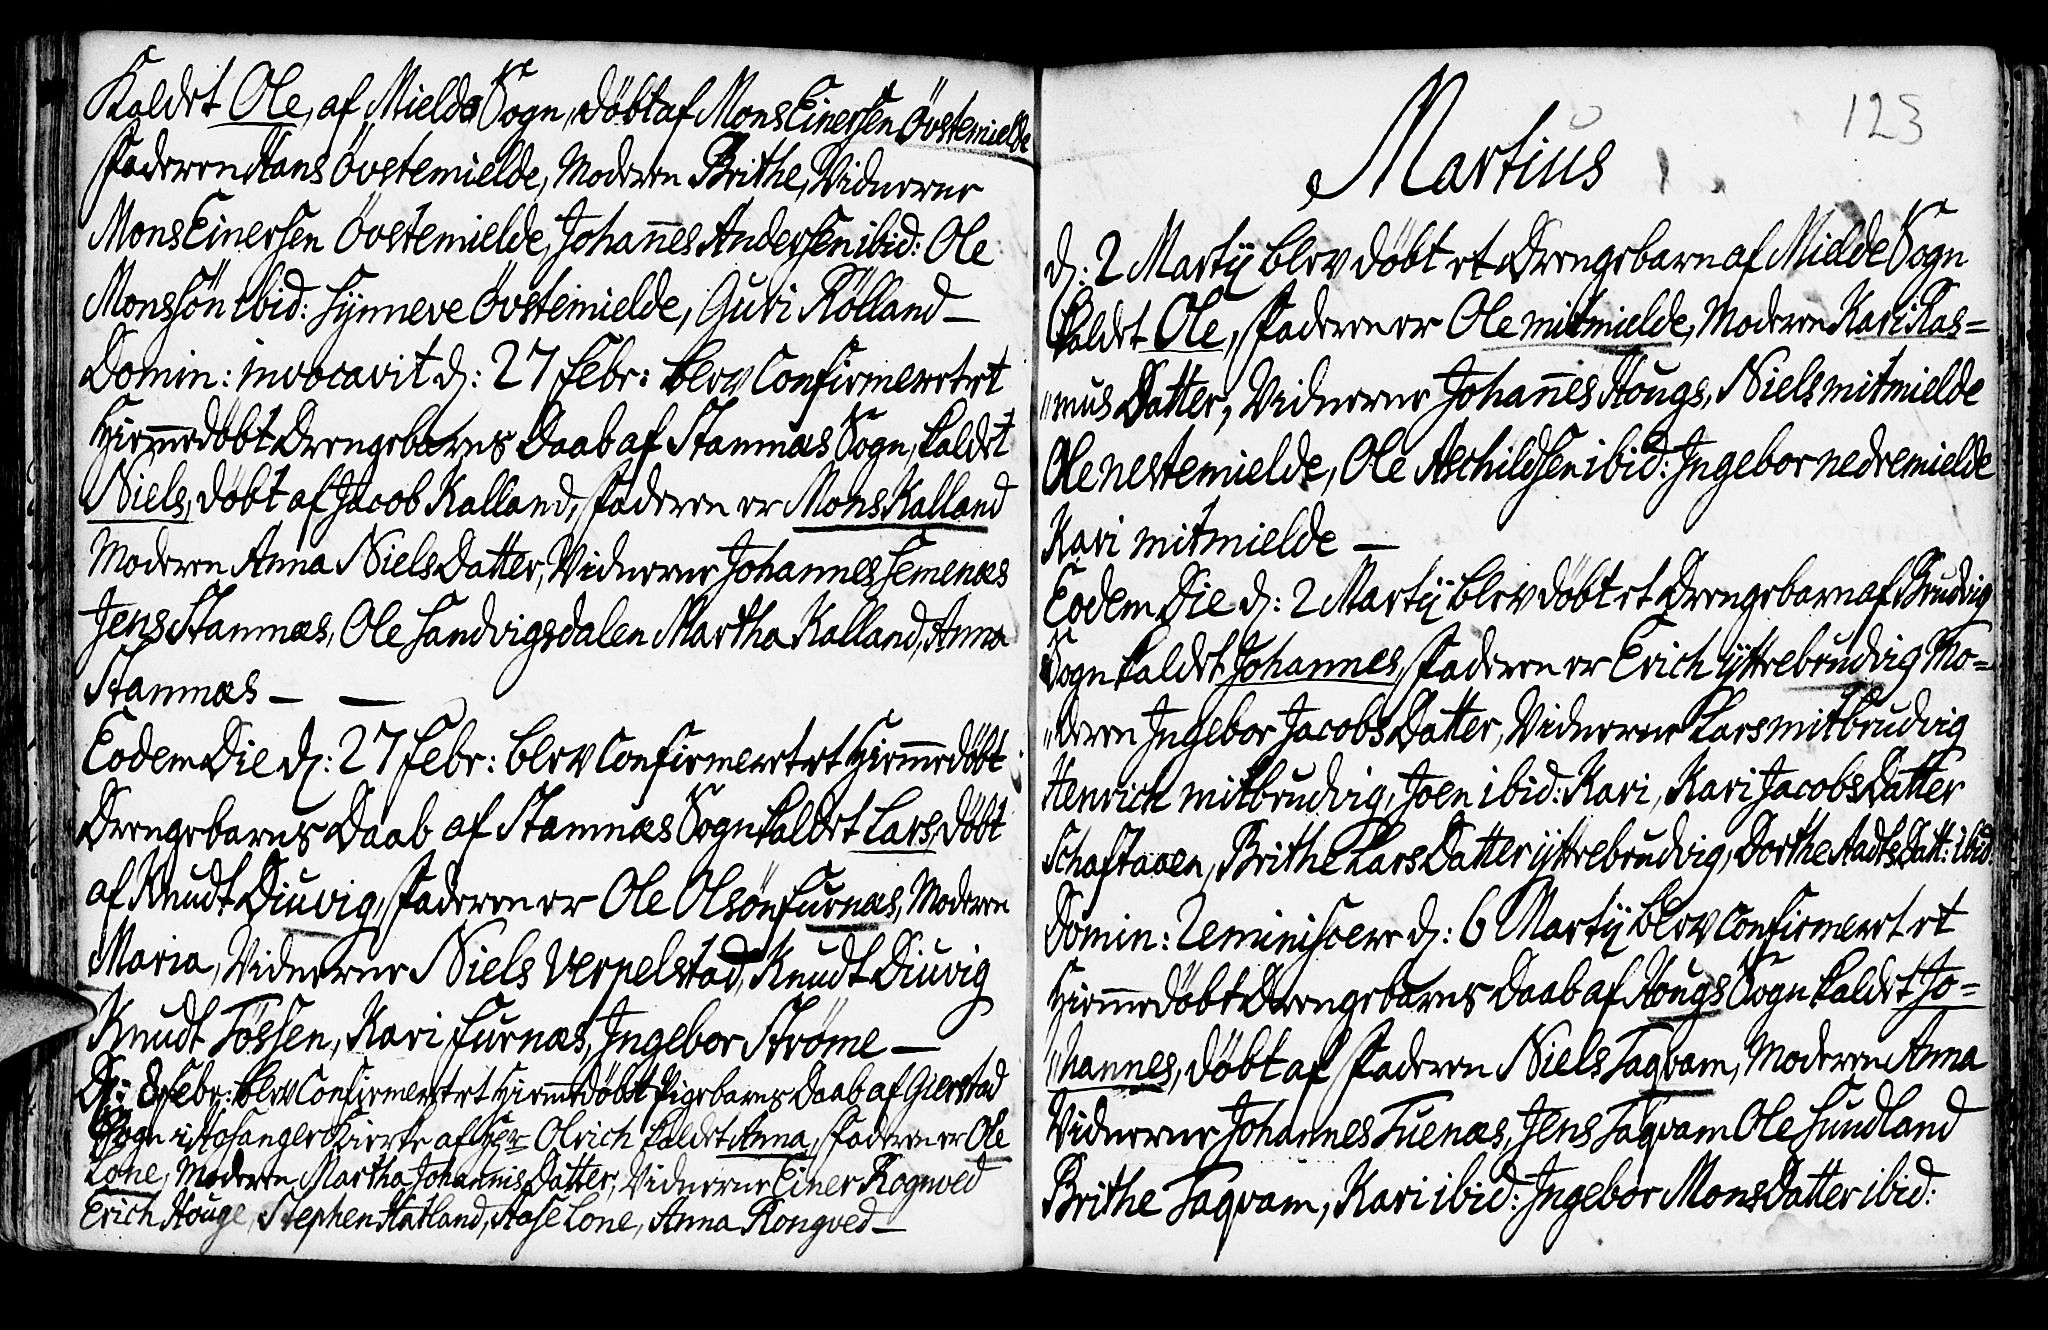 Kaldet Ole, af Mielde Sogn, døbt af Mons Einersen Øvstemielde
Faderen Hans Øvstemielde, Moderen Brithe, Vidnerne
Mons Einersen Øvstemielde, Johannes Andersen ibid: Ole
Monssön ibid: Synneve Øvstemielde, Guri Rölland —
Domin: invocavit d: 27 Febr: blev Confirmeret et
Hiemmedøbt Drengebarns Daab af Stamnæs Sogn, kaldet
Niels, døbt af Jacob Kalland, Faderen er Mons Kalland
Moderen Anna Niels Datter, Vidnerne Johannes Semenæs
Jens Stamnæs, Ole Sandvigsdalen Martha Kalland, Anna
Stamnæs — —
Eodem Die d: 27 Febr: blev Confirmeret et Hiemmedøbt
Drengebarns Daab af Stamnæs Sogn kaldet Lars, døbt
af Knudt Diuvig, Faderen er Ole Olsön Furnæs, Moderen
Maria, Vidnerne Niels Verpelstad, Knudt Diuvig
Knudt Tössen, Kari Furnæs, Ingebor Ströme —
D: 8 Febr: blev Confirmeret et Hiemmedøbt Pigebarns Daab af Gierstad
Sogn i Hosanger Kierke af Her Olrich kaldet Anna, Faderen er Ole
Lone, Moderen Martha Johannis Datter, Vidnerne Einer Rognved
Erich Houge, Stephen Hatland, Aase Lone, Anna Rongved —
123
Martius
d: 2 Martij blev døbt et Drengebarn af Mielde Sogn
kaldet Ole, Faderen er Ole mitmielde, Moderen Kari Ras=
"mus Datter, Vidnerne Johannes Hougs, Niels mitmielde
Ole nestemielde, Ole Aschildsen ibid: Ingebor nedremielde
Kari mitmielde —
Eodem Die d: 2 Martij blev døbt et Drengebarn af Brudvig
Sogn kaldet Johannes, Faderen er Erich ijttrebrudvig Mo=
"deren Ingebor Jacobs Datter, Vidnerne Lars mitbrudvig
Henrich mitbrudvig, Joen ibid: Kari, Kari Jacobs Datter
Schaftaaen, Brithe Lars Datter ijttrebrudvig, Dorthe Aadts Datt: ibid:
Domin: Reminiscere d: 6 Martij blev Confirmeret et
Hiemmedøbt Drengebarns Daab af Hougs Sogn kaldet Jo=
"hannes, døbt af Faderen Niels Taqvam, Moderen Anna
Vidnerne Johannes Tuenæs, Jens Taqvam Ole Sundland
Brithe Taqvam, Kari ibid: Ingebor Mons Datter ibid: